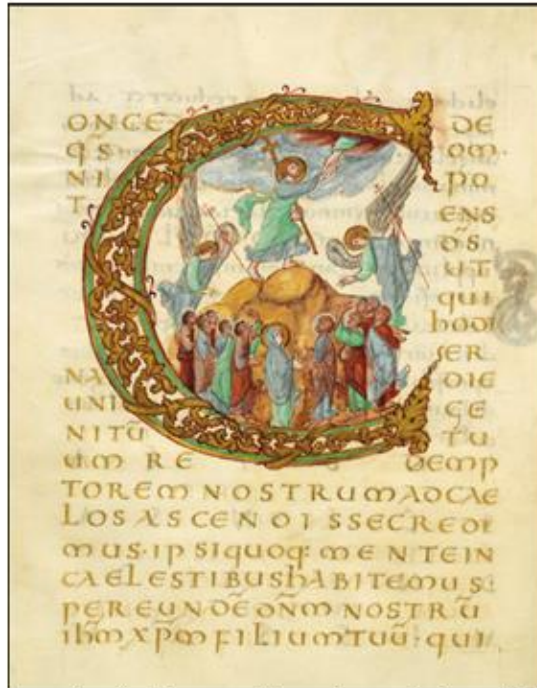 CONCE DE
q̄S OM·
NI PO
T ENS
D̄S
UT
qui
hODI
ER
NA DIE
UNI GE
NITŪ TU
UM RE DEMP
TOREM NOSTRUM AD CAE
LOS ASCENDISSE CREDI
MUS· IPSI QUOQ: MENTE IN
CAELESTIBUS hABITEMUS:
PER EUNDĒ DÑM NOSTRŪ
IHM̄ XPM̄ FILIUM TUŪ· QUI